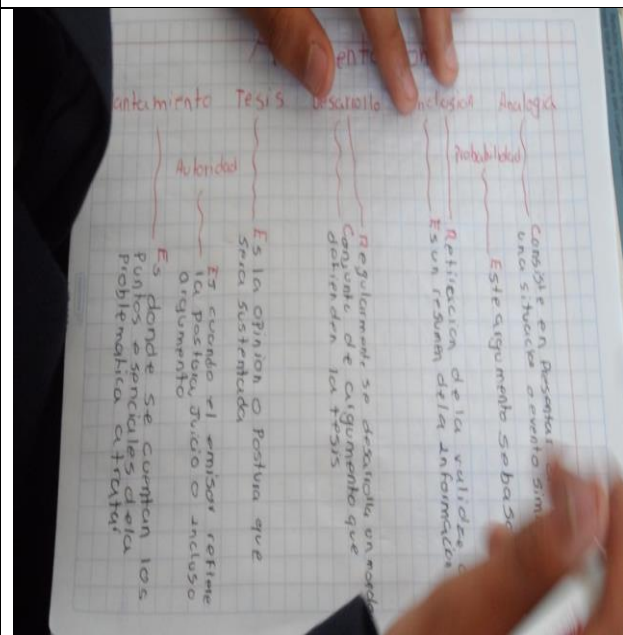 Planteamiento Tesis Desarrollo Conclusion Analogia
Autoridad Probabilidad
Es donde se cuentan los
puntos esenciales dela
problematica a tratar
Es cuando el emisor refiere
la postura, Juicio o incluso
argumento
Es la opinion o Postura que
sera sustentada
Regularmente se desarrolla un
Conjunto de argumento que
defienden la tesis
de la validez
Es un resumen dela informacion
Este argumento se basa
Consiste en Presentar
una situacion o evento